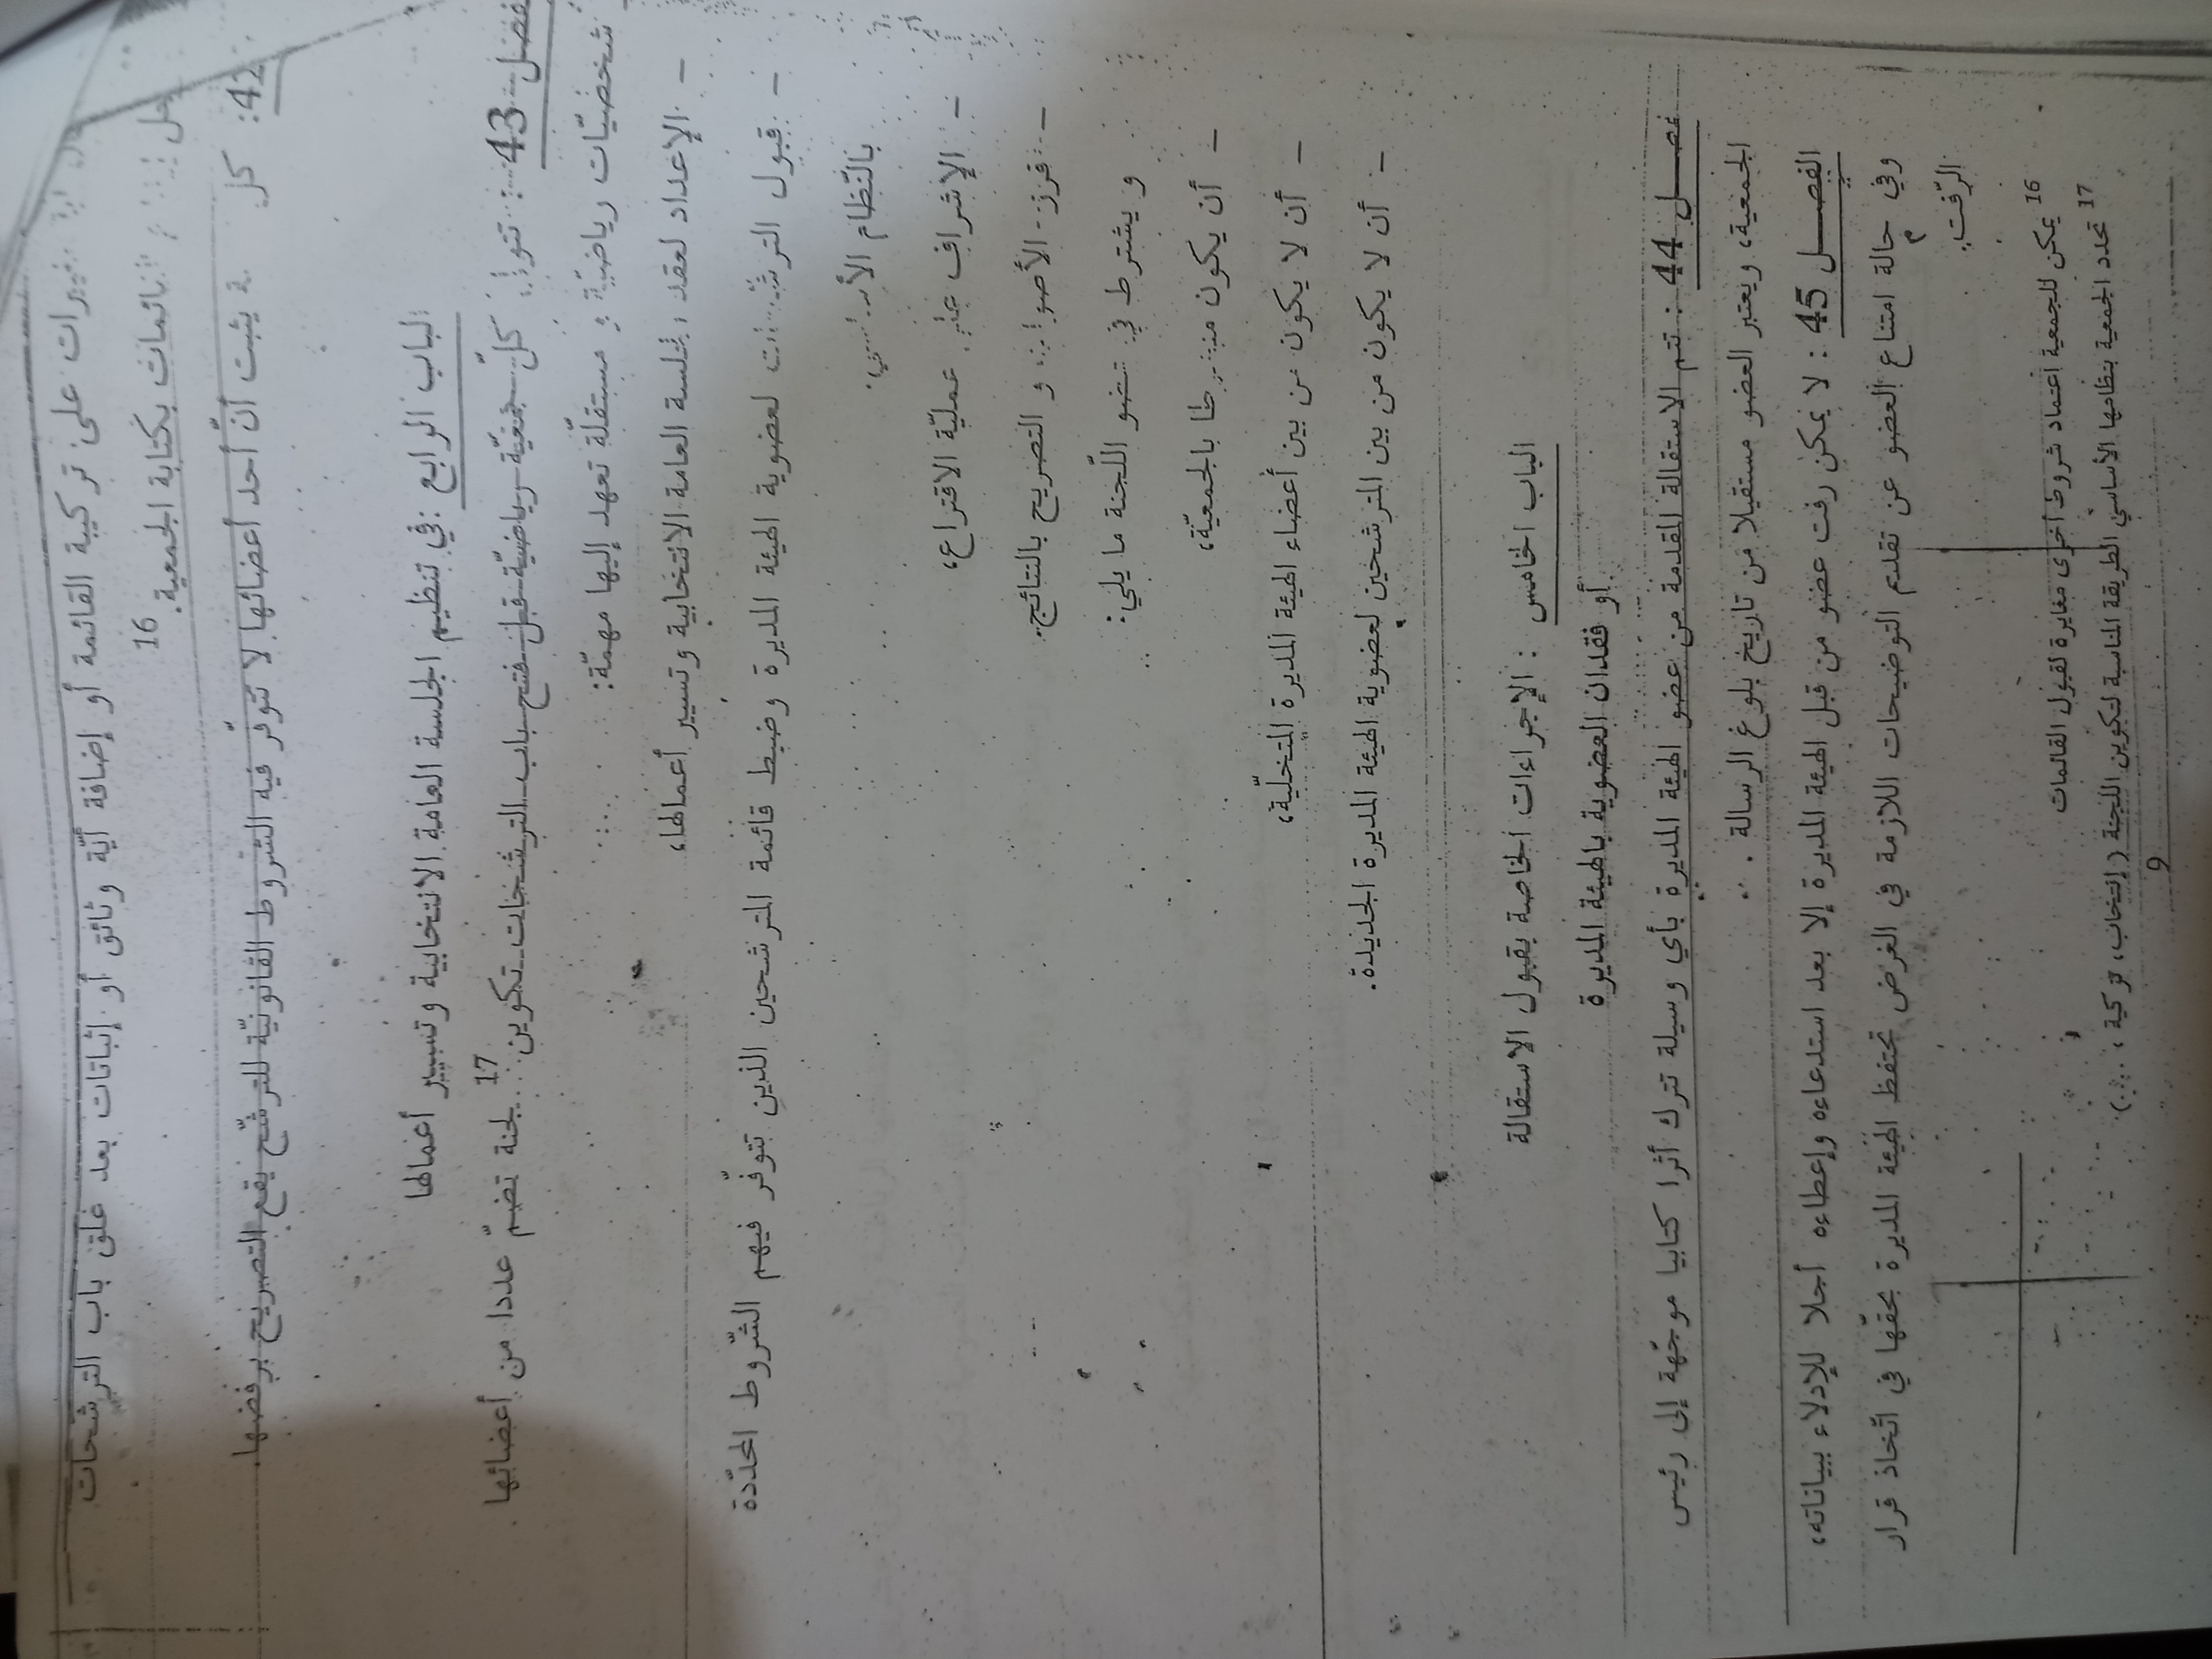 تغييرات على تركيبة القائمة أو إضافة أيّة وثائق أو إثباتات بعد غلق باب الترشحات
القائمات بكتابة الجمعية. 16
42: كل يثبت أنّ أحد أعضائها لا تتوفّر فيه الشروط القانونيّة للترشّح يقع التصريح برفضها.
الباب الرابع : في تنظيم الجلسة العامة الانتخابية وتسيير أعمالها
الفصل 43 : تتولى كلّ جمعيّة رياضيّة قبل فتح باب الترشحات تكوين 17 لجنة تضمّ عددا من أعضائها
شخصيّات رياضية و مستقلّة تعهد إليها مهمّة:
- الإعداد لعقد الجلسة العامة الانتخابية وتسيير أعمالها،
- قبول الترشحات لعضوية الهيئة المديرة وضبط قائمة المترشحين الذين تتوفّر فيهم الشّروط المحدّدة
بالنّظام الأساسي.
- الإشراف على عمليّة الاقتراع،
- فرز الأصوات و التصريح بالنتائج.
و يشترط في عضو اللّجنة ما يلي:
- أن يكون منخرطا بالجمعيّة،
- أن لا يكون من بين أعضاء الهيئة المديرة المتخلّية،
- أن لا يكون من بين المترشحين لعضوية الهيئة المديرة الجديدة.
الباب الخامس : الإجراءات الخاصة بقبول الاستقالة
أو فقدان العضوية بالهيئة المديرة
فصل 44 : تتم الاستقالة المقدمة من عضو الهيئة المديرة بأي وسيلة تترك أثرا كتابيا موجّهة إلى رئيس
الجمعية، ويعتبر العضو مستقيلا من تاريخ بلوغ الرسالة .
الفصل 45 : لا يمكن رفت عضو من قبل الهيئة المديرة إلا بعد استدعاءه وإعطاءه أجلا للإدلاء ببياناته،
وفي حالة امتناع العضو عن تقديم التوضيحات اللازمة في الغرض تحتفظ الهيئة المديرة بحقّها في اتّخاذ قرار
الرّفت.
16 يمكن للجمعية اعتماد شروط أخرى مغايرة لقبول القائمات
17 تحدد الجمعية بنظامها الأساسي الطريقة المناسبة لتكوين اللجنة (إنتخاب، تزكية ، ...)
9